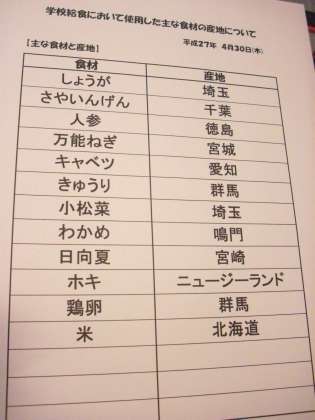 学校給食において使用した主な食材の産地について
平成27年 4月30日(木)
【主な食材と産地】
食材 産地
しょうが 埼玉
さやいんげん 千葉
人参 徳島
万能ねぎ 宮城
キャベツ 愛知
きゅうり 群馬
小松菜 埼玉
わかめ 鳴門
日向夏 宮崎
ホキ ニュージーランド
鶏卵 群馬
米 北海道